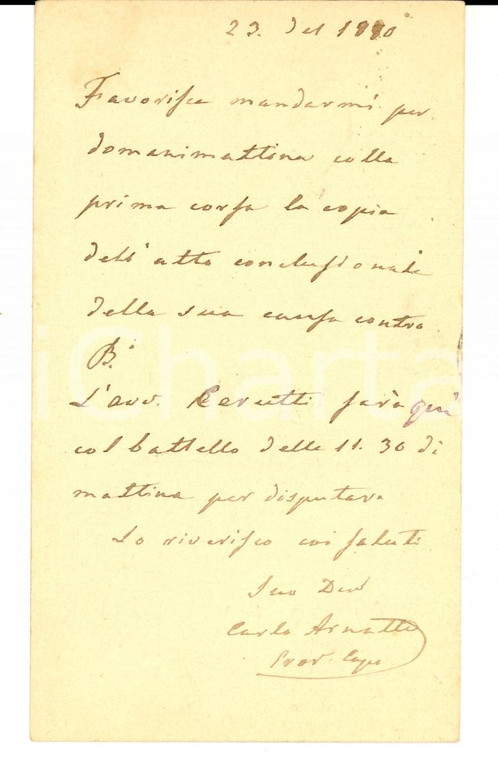 23. del 1890
Favorisca mandarmi per
domani mattina colla
prima corsa la copia
dell'atto conclusionale
della sua causa contro
B.
L'avv. Cerutti sarà quì
col battello delle 11.30 di
mattina per disputare
Lo riverisco coi saluti
Suo Dev
Carlo Arnatti
Proc. Capo